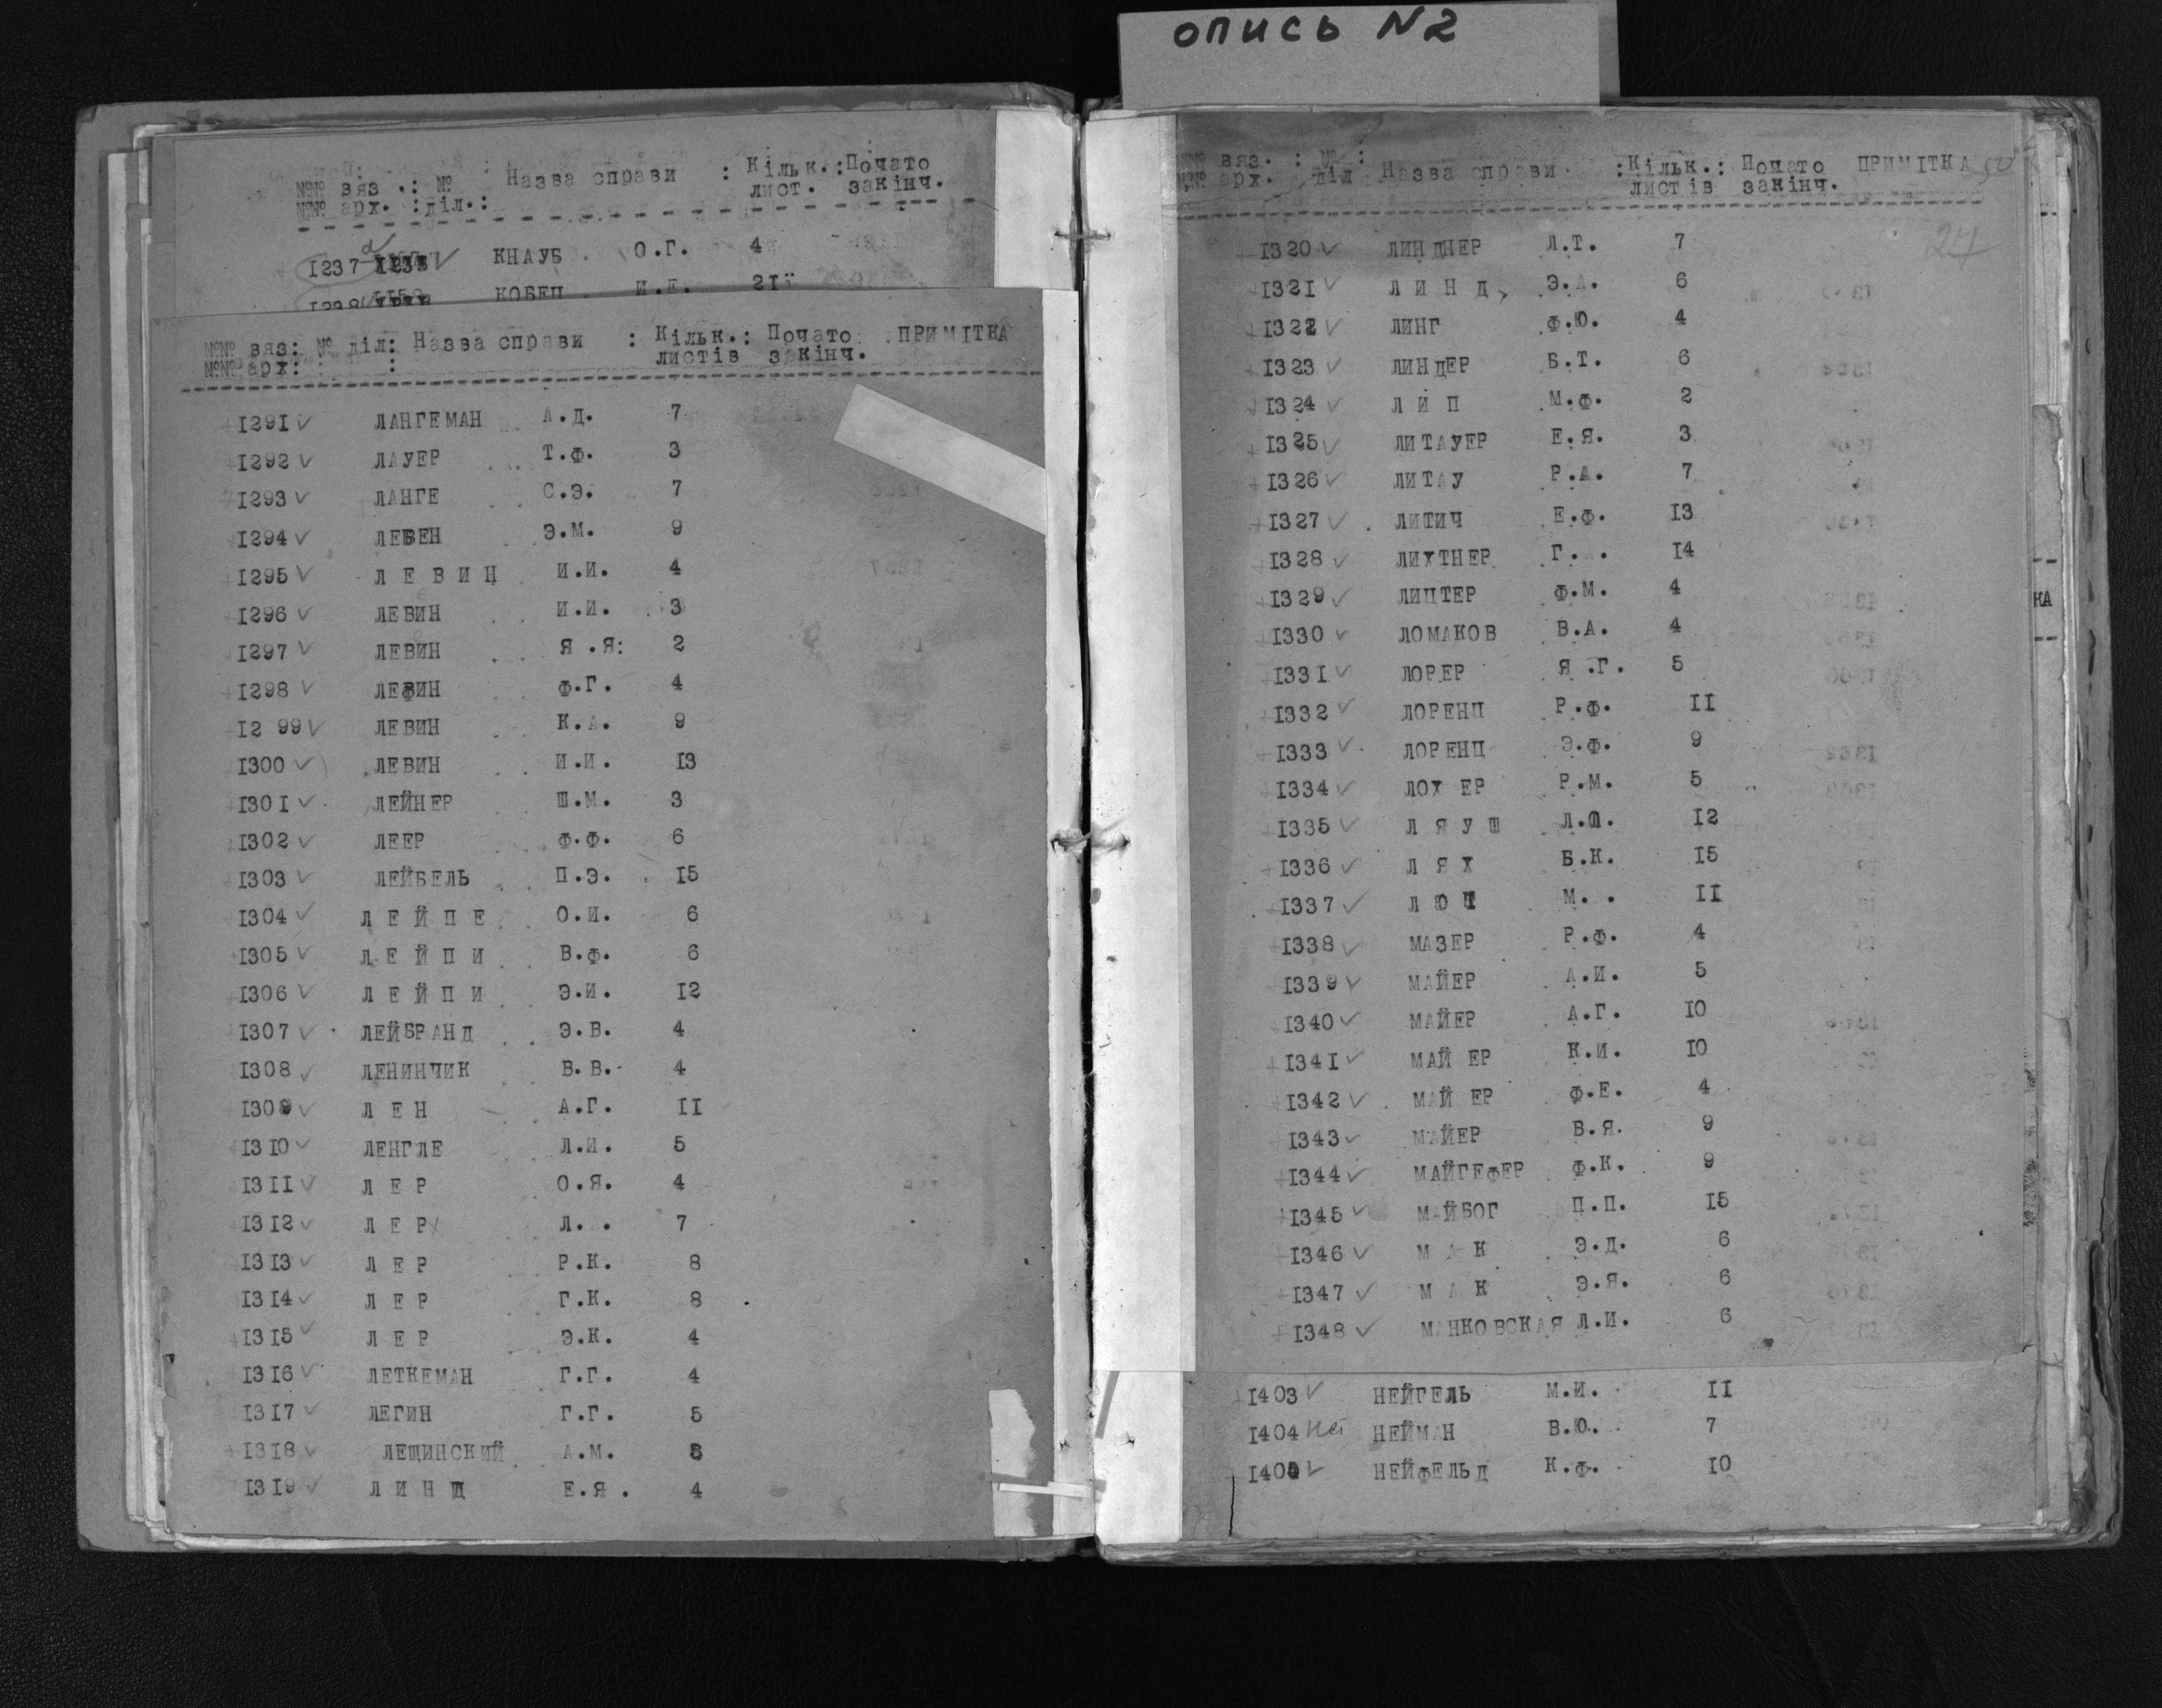 опись N2
№№ вяз.: № : Назва справи : Кільк.: Почато
№№ арх. :діл.: лист. закінч.
1237 КНАУБ О.Г. 4
КОБЕЦ И.Е. 21
№№ вяз: № діл: Назва справи : Кільк.: Почато ПРИМІТКА
№№ арх: : листів закінч.
1291 ЛАНГЕМАН А.Д. 7
1292 ЛАУЕР Т.Ф. 3
1293 ЛАНГЕ С.Э. 7
1294 ЛЕВЕН Э.М. 9
1295 Л Е В И Н И.И. 4
1296 ЛЕВИН И.И. 3
1297 ЛЕВИН Я .Я: 2
1298 ЛЕВИН Ф.Г. 4
12 99 ЛЕВИН К.А. 9
1300 ЛЕВИН И.И. 13
1301 ЛЕЙНЕР Ш.М. 3
1302 ЛЕЕР Ф.Ф. 6
1303 ЛЕЙБЕЛЬ П.Э. 15
1304 Л Е Й П Е О.И. 6
1305 Л Е Й П И В.Ф. 6
1306 Л Е Й П И Э.И. 12
1307 ЛЕЙБРАНД Э.В. 4
1308 ЛЕНИНЧИК В.В. 4
1309 Л Е Н А.Г. 11
1310 ЛЕНГЛЕ Л.И. 5
1311 Л Е Р О.Я. 4
1312 Л Е Р Л. . 7
1313 Л Е Р Р.К. 8
1314 Л Е Р Г.К. 8
1315 Л Е Р Э.К. 4
1316 ЛЕТКЕМАН Г.Г. 4
1317 ЛЕГИН Г.Г. 5
1318 ЛЕЩИНСКИЙ А.М.
1319 Л И Н Д Е.Я. 4
№№ вяз. : № : Назва справи :Кільк.: Почато ПРИМІТКА 50
№№ арх. діл листів закінч.
27
1320 ЛИНДНЕР Л.Т. 7
1321 Л И Н Д, Э.А. 6
1322 ЛИНГ Ф.Ю. 4
1323 ЛИНДЕР Б.Т. 6
1324 Л И П М.Ф. 2
1325 ЛИТАУЕР Е.Я. 3
1326 ЛИТАУ Р.А. 7
1327 ЛИТИЧ Е.Ф. 13
1328 ЛИХТНЕР Г. . 14
1329 ЛИЦТЕР Ф.М. 4
1330 ЛОМАКОВ В.А. 4
1331 ЛОРЕР Я .Г. 5
1332 ЛОРЕНЦ Р.Ф. 11
1333 ЛОРЕНЦ Э.Ф. 9
1334 ЛОХ ЕР Р.М. 5
1335 Л Я У Ш Л.П. 12
1336 Л Я Х Б.К. 15
1337 М. . 11
1338 МАЗЕР Р.Ф. 4
1339 МАЙЕР А.И. 5
1340 МАЙЕР А.Г. 10
1341 МАЙ ЕР К.И. 10
1342 МАЙ ЕР Ф.Е. 4
1343 МАЙЕР В.Я. 9
1344 МАЙГЕФЕР Ф.К. 9
1345 МАЙБОГ П.П. 15
1346 М А К Э.Д. 6
1347 М А К Э.Я. 6
1348 МАНКОВСКАЯ Л.И. 6
1403 НЕЙГЕЛЬ М.И. 11
1404 НЕЙМАН В.Ю. 7
НЕЙФЕЛЬД К.Ф. 10
КА